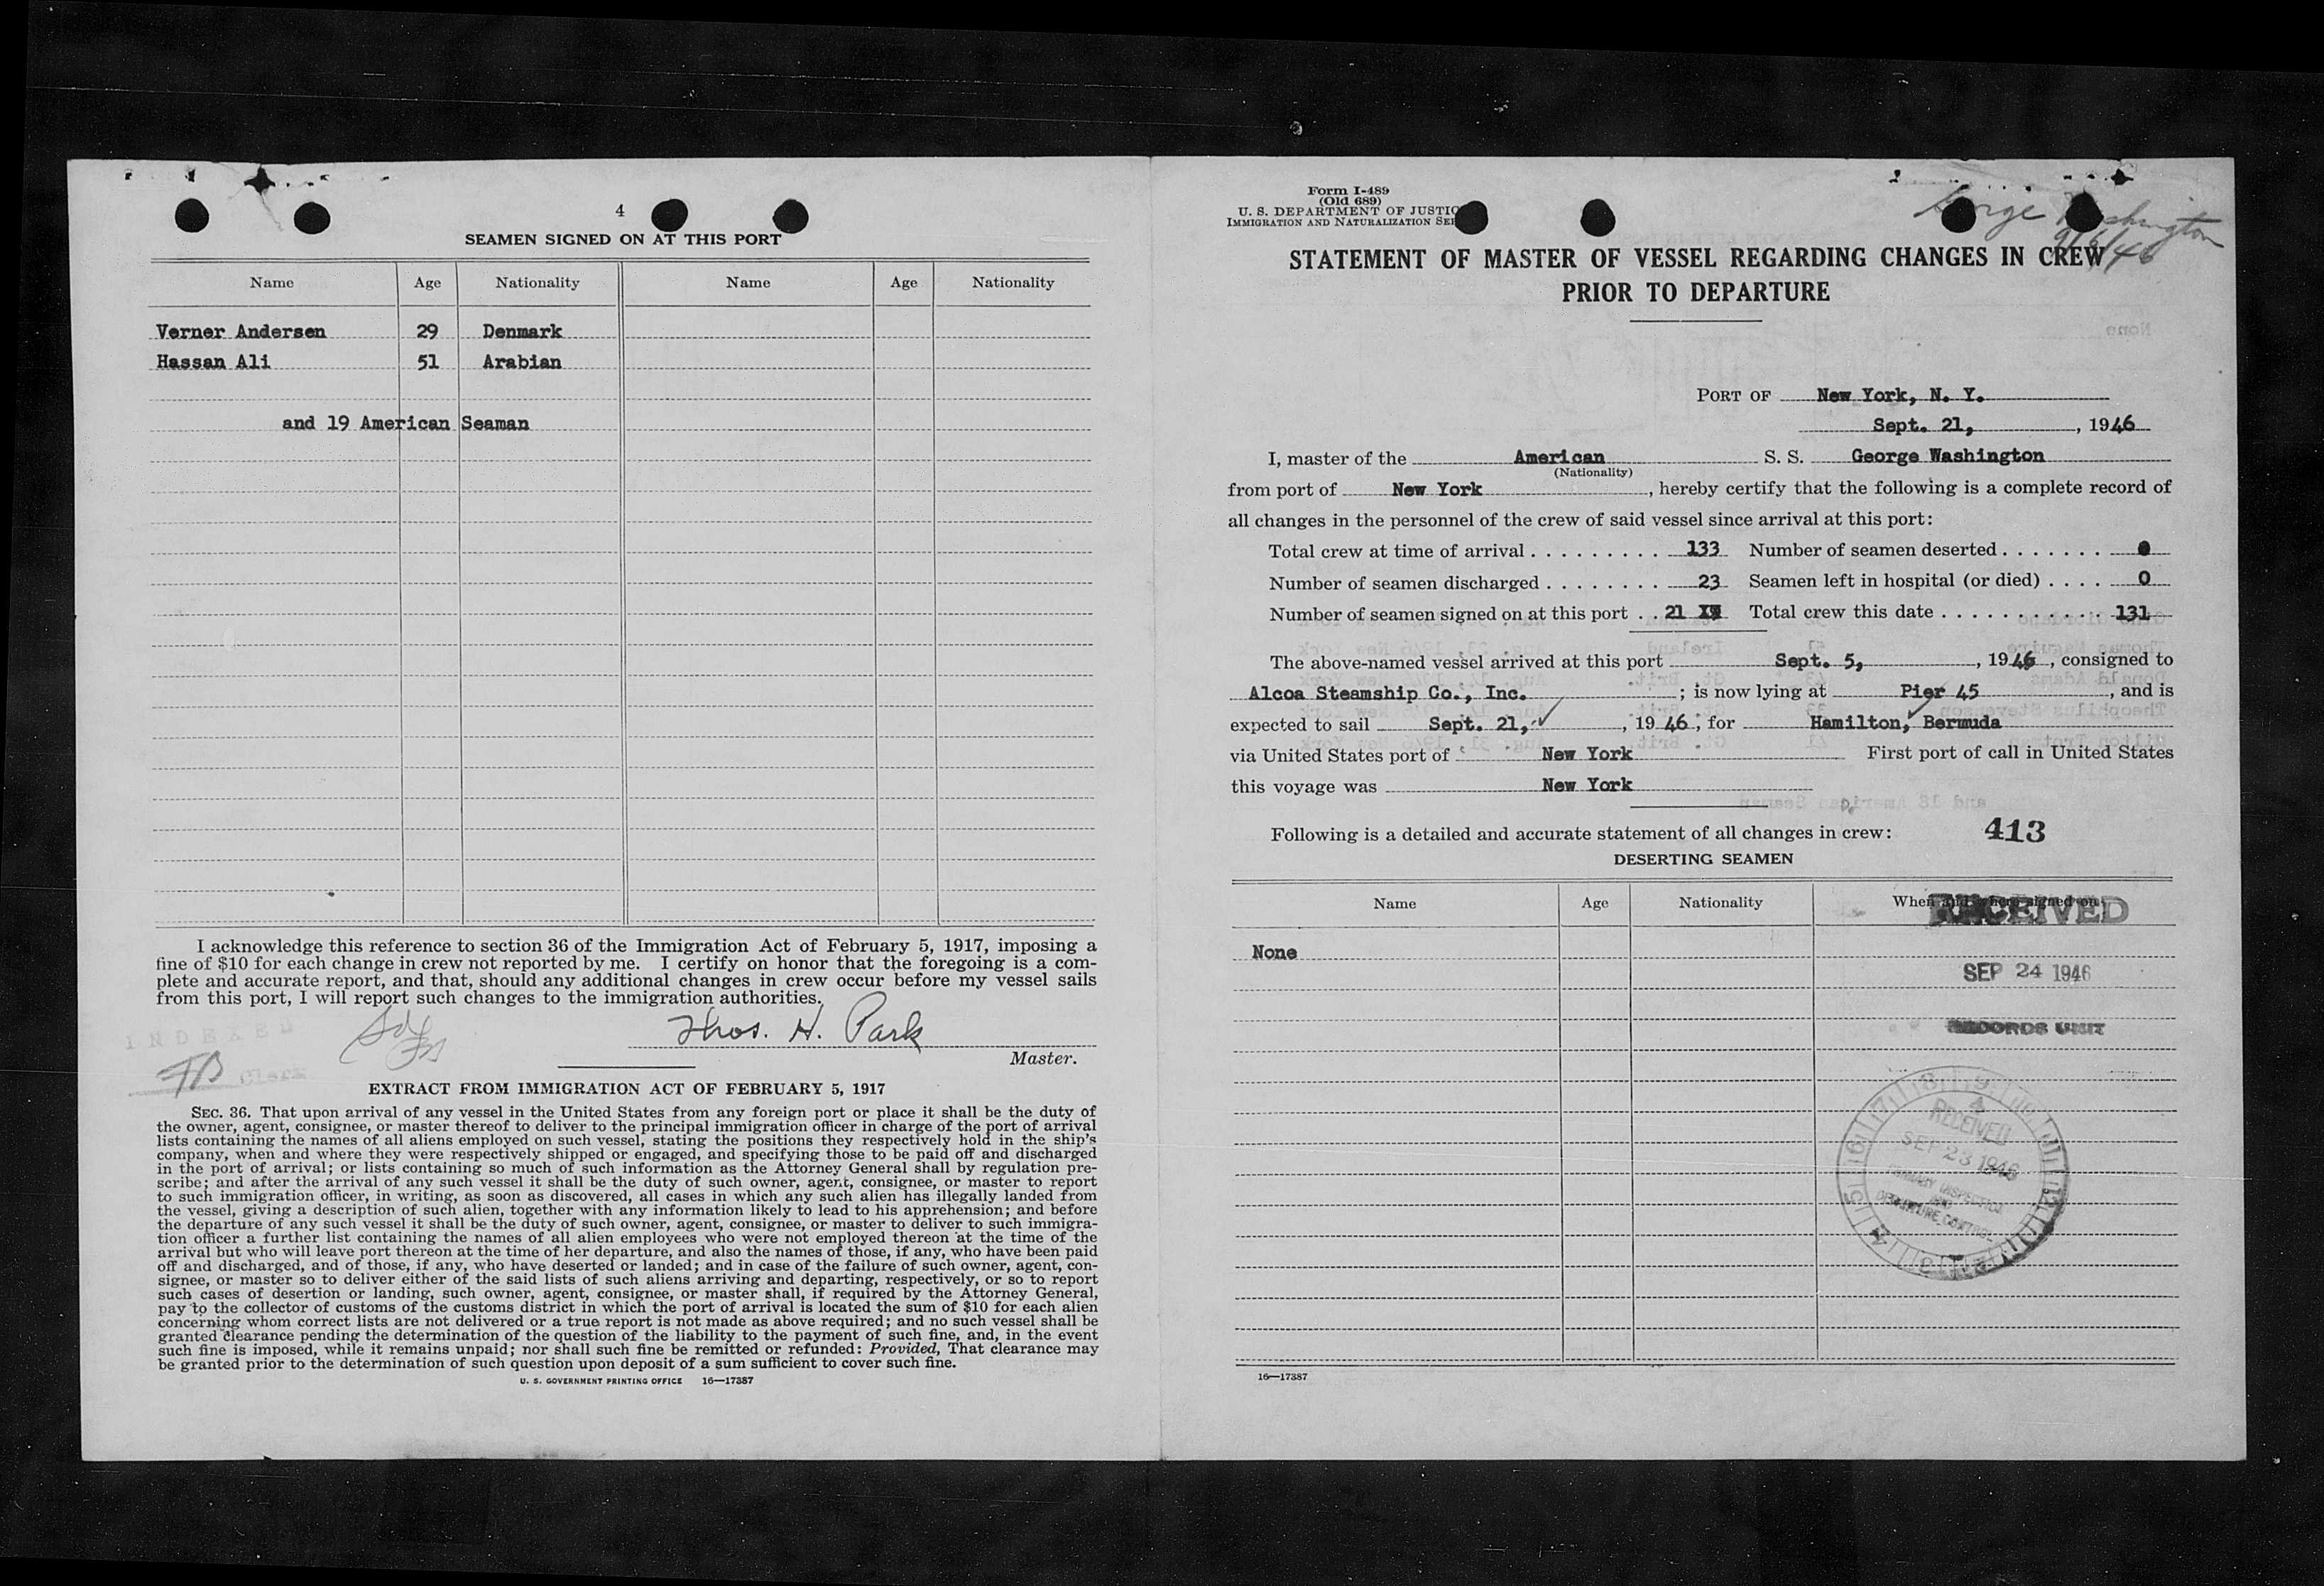 4
SEAMEN SIGNED ON AT THIS PORT
Name Age Nationality Name Age Nationality
Verner Andersen 29 Denmark
Hassan Ali 51 Arabian
and 19 American Seaman
I acknowledge this reference to section 36 of the Immigration Act of February 5, 1917, imposing a
fine of $10 for each change in crew not reported by me. I certify on honor that the foregoing is a com-
plete and accurate report, and that, should any additional changes in crew occur before my vessel sails
from this port, I will report such changes to the immigration authorities.
INDEXED
Thos. H. Park
Master.
Clerk
EXTRACT FROM IMMIGRATION ACT OF FEBRUARY 5, 1917
SEC. 36. That upon arrival of any vessel in the United States from any foreign port or place it shall be the duty of
the owner, agent, consignee, or master thereof to deliver to the principal immigration officer in charge of the port of arrival
lists containing the names of all aliens employed on such vessel, stating the positions they respectively hold in the ship's
company, when and where they were respectively shipped or engaged, and specifying those to be paid off and discharged
in the port of arrival; or lists containing so much of such information as the Attorney General shall by regulation pre-
scribe; and after the arrival of any such vessel it shall be the duty of such owner, agent, consignee, or master to report
to such immigration officer, in writing, as soon as discovered, all cases in which any such alien has illegally landed from
the vessel, giving a description of such alien, together with any information likely to lead to his apprehension; and before
the departure of any such vessel it shall be the duty of such owner, agent, consignee, or master to deliver to such immigra-
tion officer a further list containing the names of all alien employees who were not employed thereon at the time of the
arrival but who will leave port thereon at the time of her departure, and also the names of those, if any, who have been paid
off and discharged, and of those, if any, who have deserted or landed; and in case of the failure of such owner, agent, con-
signee, or master so to deliver either of the said lists of such aliens arriving and departing, respectively, or so to report
such cases of desertion or landing, such owner, agent, consignee, or master shall, if required by the Attorney General,
pay to the collector of customs of the customs district in which the port of arrival is located the sum of $10 for each alien
concerning whom correct lists are not delivered or a true report is not made as above required; and no such vessel shall be
granted clearance pending the determination of the question of the liability to the payment of such fine, and, in the event
such fine is imposed, while it remains unpaid; nor shall such fine be remitted or refunded: Provided, That clearance may
be granted prior to the determination of such question upon deposit of a sum sufficient to cover such fine.
U. S. GOVERNMENT PRINTING OFFICE 16—17387
Form I-489
(Old 689)
U. S. DEPARTMENT OF JUSTIC
IMMIGRATION AND NATURALIZATION SER
George Washington
9/5/46
STATEMENT OF MASTER OF VESSEL REGARDING CHANGES IN CREW
PRIOR TO DEPARTURE
PORT OF New York, N. Y.
Sept. 21, , 1946
I, master of the American S. S. George Washington
(Nationality)
from port of New York , hereby certify that the following is a complete record of
all changes in the personnel of the crew of said vessel since arrival at this port:
Total crew at time of arrival 133 Number of seamen deserted 0
Number of seamen discharged 23 Seamen left in hospital (or died) 0
Number of seamen signed on at this port 21 Total crew this date 131
The above-named vessel arrived at this port Sept. 5, , 1946 , consigned to
Alcoa Steamship Co., Inc. ; is now lying at Pier 45 , and is
expected to sail Sept. 21, , 1946 , for Hamilton, Bermuda
via United States port of New York First port of call in United States
this voyage was New York
Following is a detailed and accurate statement of all changes in crew: 413
DESERTING SEAMEN
Name Age Nationality When and where signed on
RECEIVED
None
SEP 24 1946
RECORDS UNIT
RECEIVED
SEP 23 1946
DEPARTURE CONTROL
16—17387